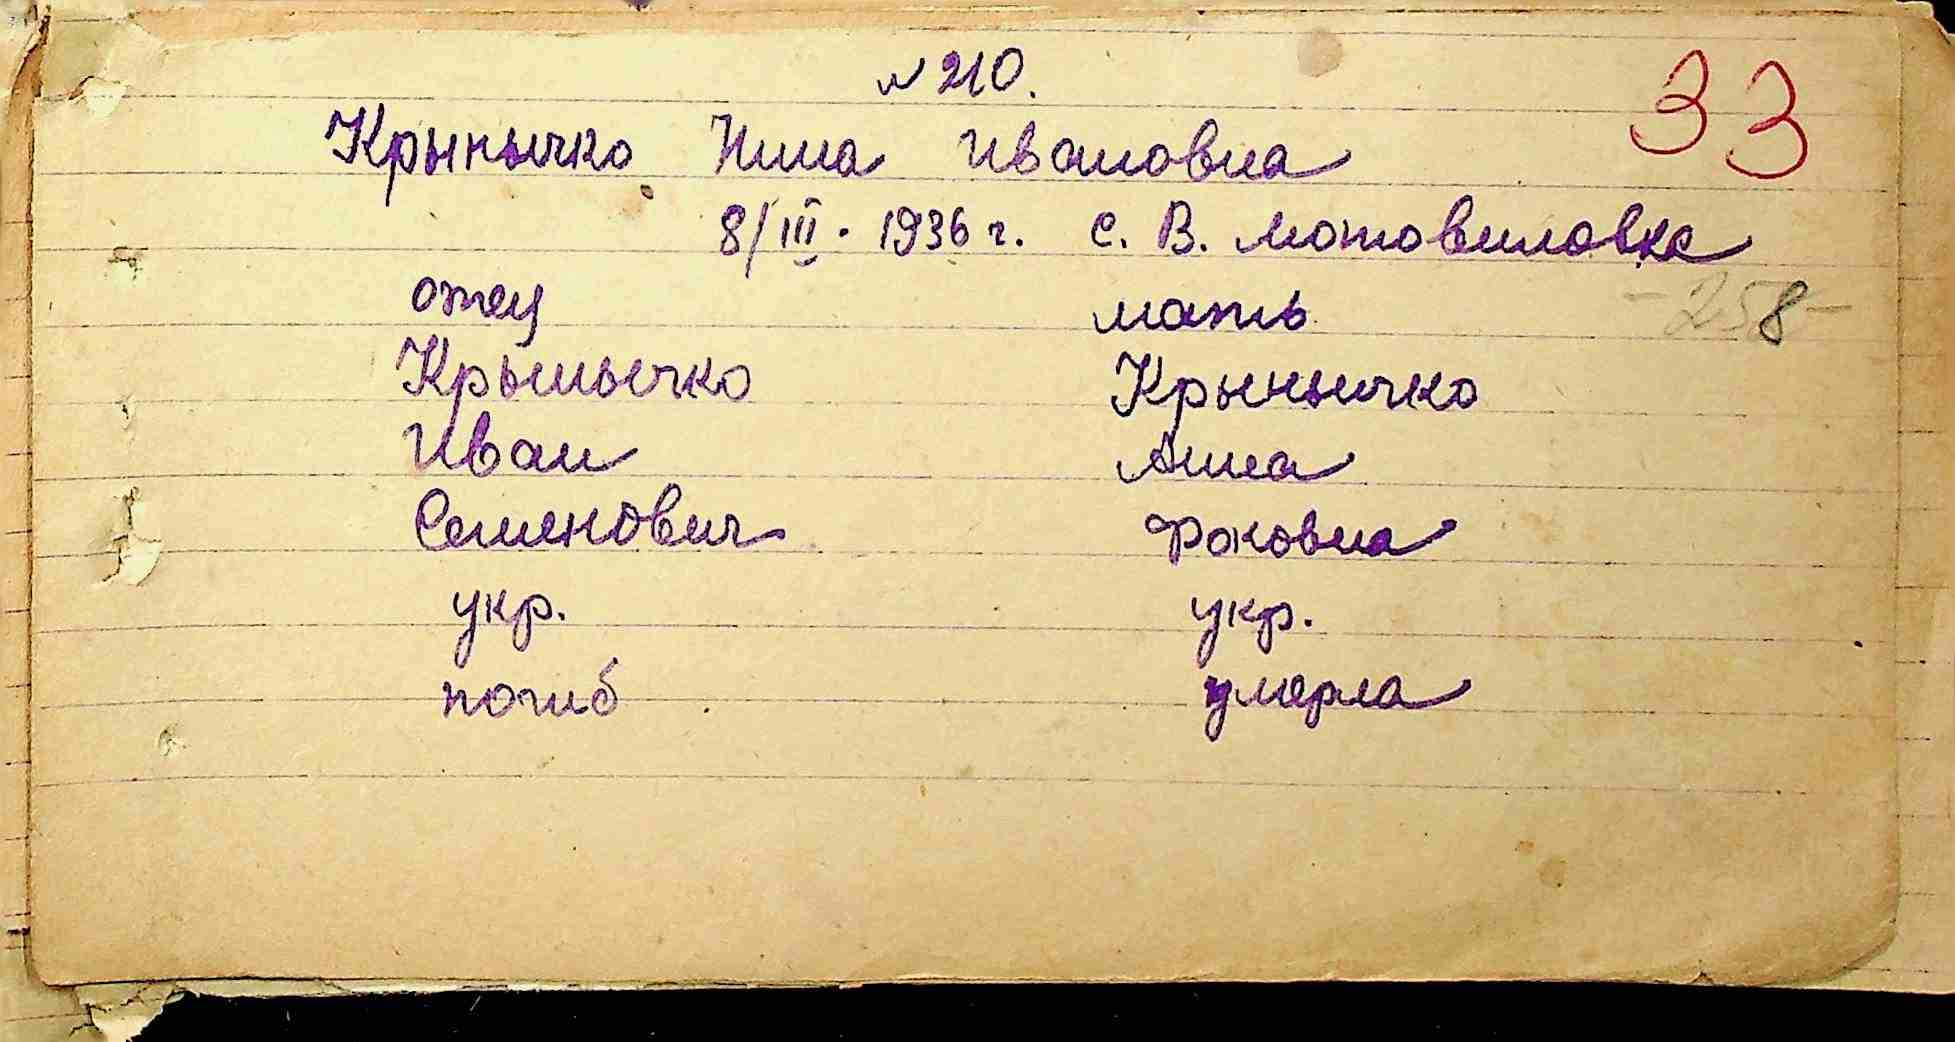 № 210.
33
Крынычко Нина Ивановна
8/III. 1936 г. с. В. Мотовиловка
отец мать
- 258 -
Крынычко Крынычко
Иван Анна
Семенович Фоковна
укр. укр.
погиб умерла